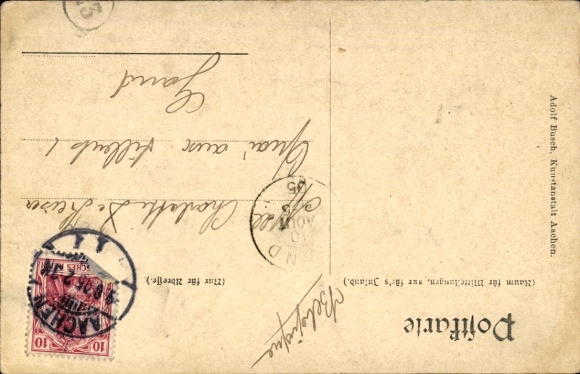 Postkarte
(Raum für Mitteilungen, nur für's Inland.)
(Nur für Adresse.)
Adolf Busch, Kunstanstalt Aachen.
Belgique
Mlle Charlotte De
Quai aux tilleuls 1
Gand
AACHEN
10 10
AOUT
05